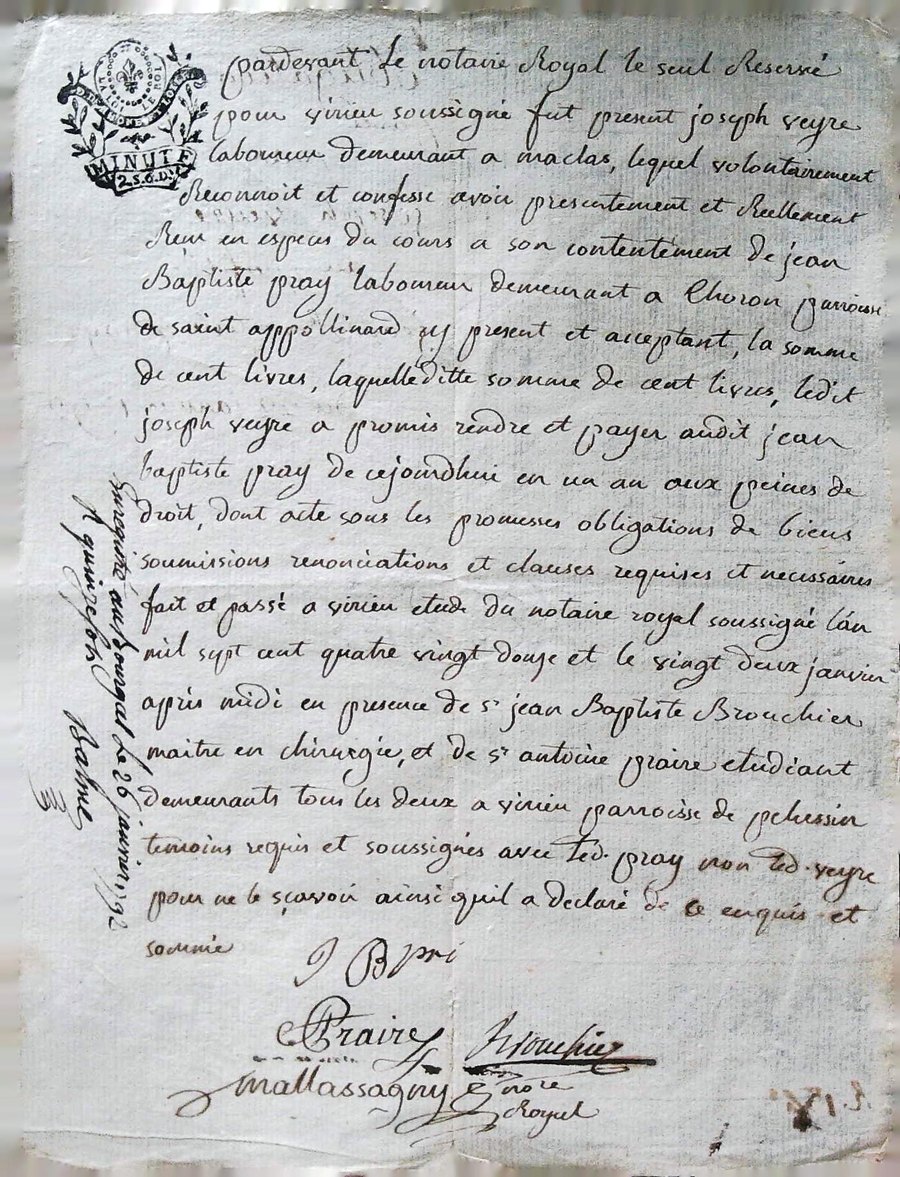 LA LOI LE ROI
MINUTE
2.S.6.D.
pardevant Le notaire Royal le seul Reservé
pour virieu soussigné fut present joseph veyre
laboureur demeurant a maclas, lequel volontairement
Reconnoit et confesse avoir presentement et Reellement
Reçu en especes du cours a son contentement de jean
Baptiste pray laboureur demeurant a Choron parroisse
de saint appollinard icy present et acceptant, la somme
de cent livres, laquelle ditte somme de cent livres, ledit
joseph veyre a promis rendre et payer audit jean
baptiste pray de cejourdhui en un an aux peines de
droit, dont acte sous les promesses obligations de biens
soumissions renonciations et clauses requises et necessaires
fait et passé a virieu etude du notaire royal soussigné lán
mil sypt cent quatre vingt douze et le vingt deux janvier
après midi en presence de sr jean Baptiste Brouchier
maitre en chirurgie, et de sr antoine praire etudiant
demeurants tous les deux a virieu parroisse de pelussin
temoins requis et soussignés avec led. pray non led. veyre
pour ne le sçavoir ainsi quil a declaré de ce enquis et
sommé
J B pri
Praire
Brouchier
Mallassagny nore
Royal
Enregistré au bourgal Le 26 janvier 92
R quinze sols